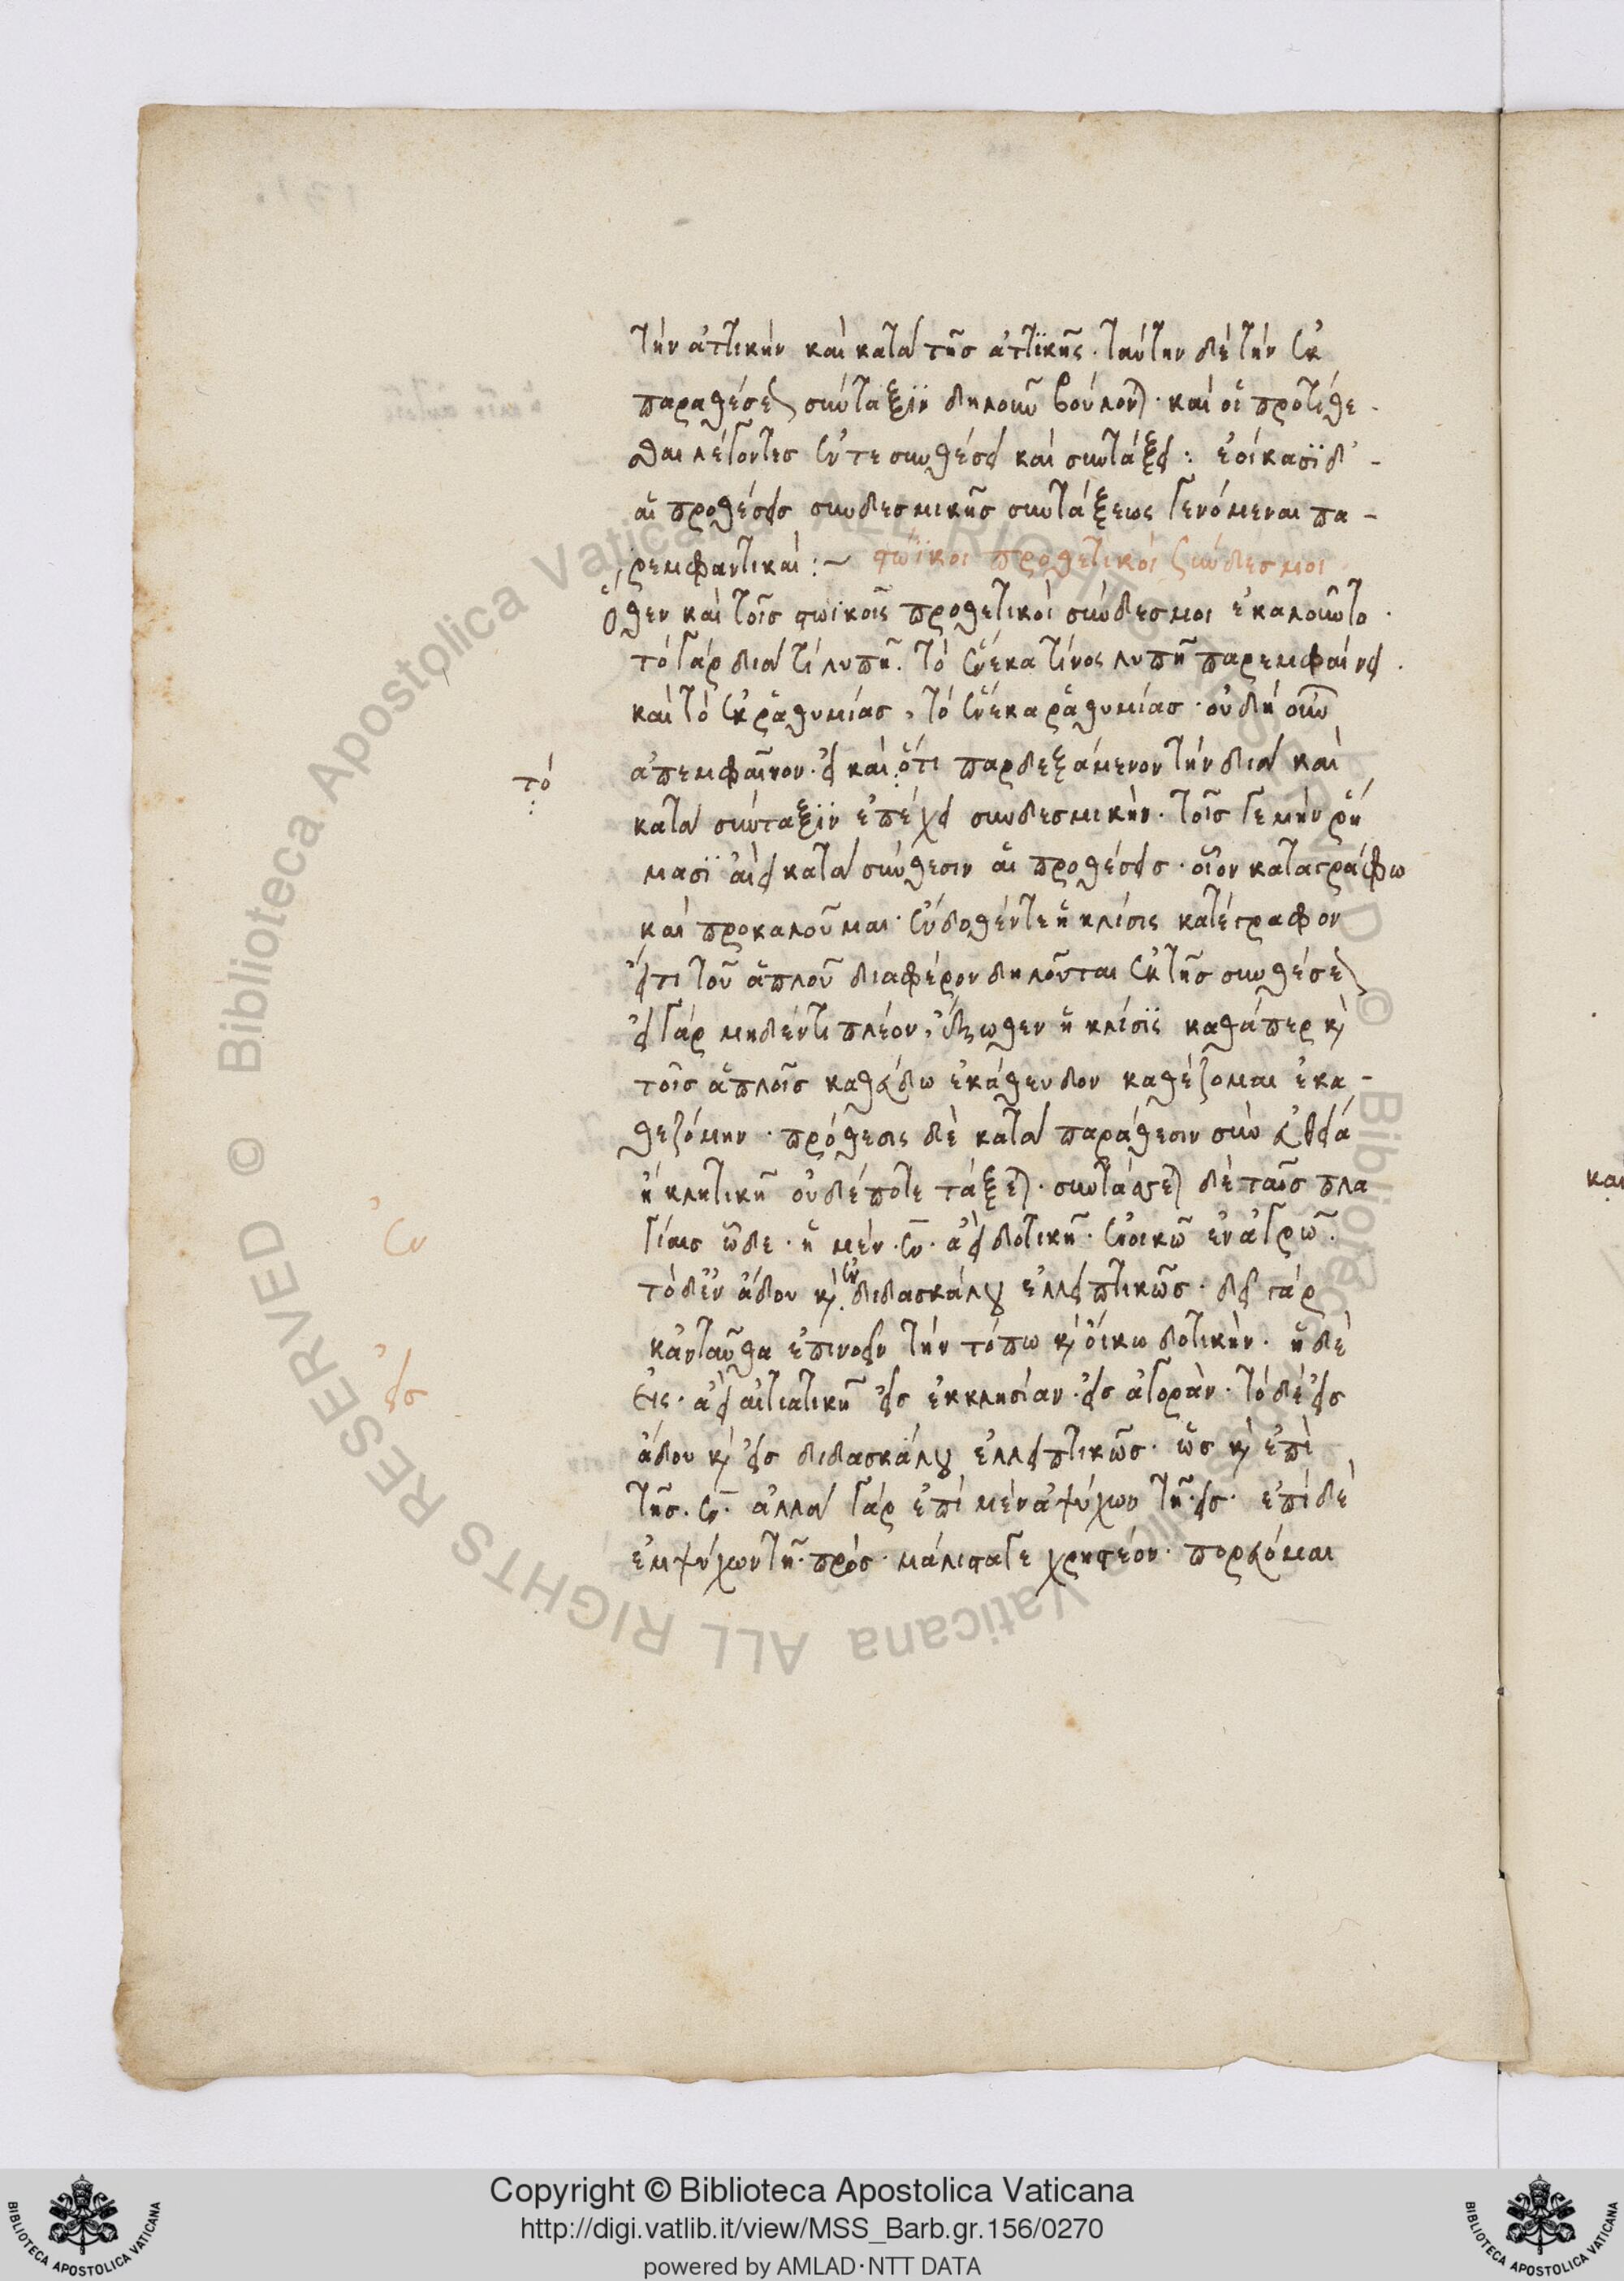 τὴν ἀττικὴν καὶ κατὰ τῆς ἀττϊκῆς· ταύτην δὲ τὴν ἐκ
παραθέσεως σύνταξϊν δηλοῦν βούλονται· καὶ οἱ προτίθε-
σθαι λέγοντες ἔν τε συνθέσει καὶ συντάξει: ἐοίκασϊ δ'-
αἱ προθέσεις συνδεσμικῆς συντάξεως γενόμεναι πα-
ρεμφαντικαί:~ στωϊκοι προθετικοὶ ζύνδεσμοι
ὅθεν καὶ τοῖς στωϊκοῖς προθετικοὶ σύνδεσμοι ἐκαλοῦντο·
τὸ γὰρ διὰ τί λυπῆ. τὸ ἕνεκα τίνος λυπῆ παρεμφαίνει.
καὶ τὸ ἐκ ῥαθυμίας, τὸ ἕνεκα ῥαθυμίας· οὐ δὴ οὖν
τὸ
ἀπεμφαῖνον· εἰ καὶ ὅτι παρδεξάμενον τὴν διὰ καὶ
κατὰ σύνταξϊν ἐπέχει συνδεσμικήν· τοῖς γε μὴν ῥή
μασϊ ἀεὶ κατὰ σύνθεσιν αἱ προθέσεις· οἷον καταγράφω
καὶ προκαλοῦμαι· ἔνδοθέν τε ἡ κλίσις κατέγραφον
εἴ τι τοῦ ἁπλοῦ διαφέρον δηλοῦται ἐκ τῆς συνθέσεως
εἰ γὰρ μηδέν τι πλέον, ἔξωθεν ἡ κλίσϊς καθάπερ κὶ
τοῖς ἁπλοῖς καθεύδω ἐκάθευδον καθέζομαι ἐκα-
θεζόμην· πρόθεσις δὲ κατὰ παράθεσιν σὺν εὐθεία
ἢ κλητικῆ οὐδέποτε τάξεται· συντάσσεται δὲ ταῖς πλα
γίαις ὧδε· ἡ μέν· ἐν· ἀεὶ δοτικῆ· ἐν οἰκῶ ἐν ἀγρῶ·
ἐν
τὸ δ' ἐν ἅδου κὶ ἐν διδασκάλου ἐλλειπτικῶς· δεῖ γάρ
κἀνταῦθα ἐπινοεῖν τὴν τόπω κὶ οἴκω δοτικήν· ἡ δὲ
εἰς
εἰς· ἀεὶ αἰτιατικῆ εἰς ἐκκλησίαν· εἰς ἀγοράν· τὸ δὲ εἰς
ἅδου κὶ εἰς διδασκάλου ἐλλειπτικῶς· ὡς κὶ ἐπὶ
τῆς· ἐν· ἀλλὰ γὰρ ἐπὶ μὲν ἀψύχων τῆ· εἰς· ἐπὶ δὲ
ἐμψύχων τῆ· πρός· μάλιστά γε χρηστέον· πορεύομαι